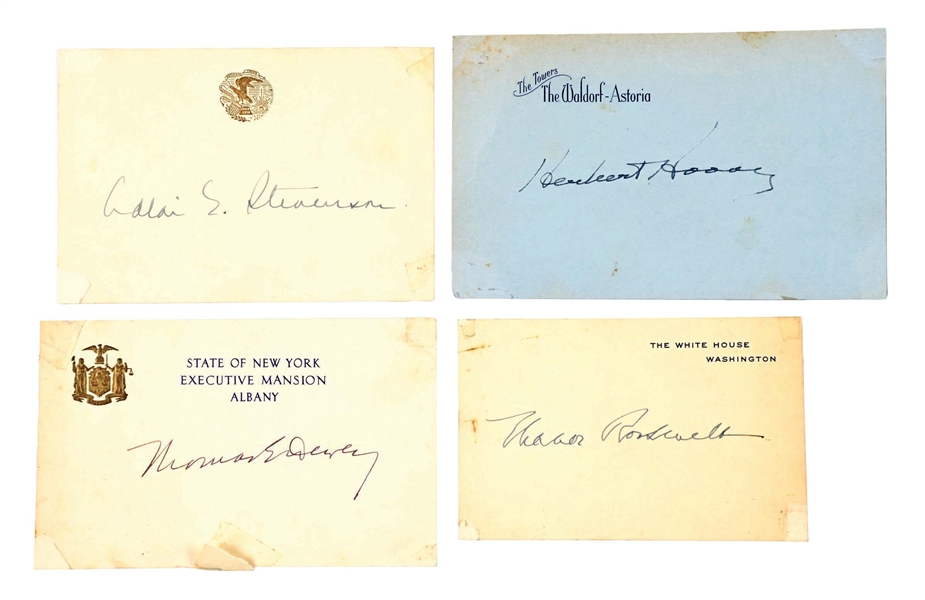 Adlai E. Stevenson.
The Towers
The Waldorf-Astoria
Herbert Hoover
STATE OF NEW YORK
EXECUTIVE MANSION
ALBANY
Thomas E Dewey
THE WHITE HOUSE
WASHINGTON
Eleanor Roosevelt